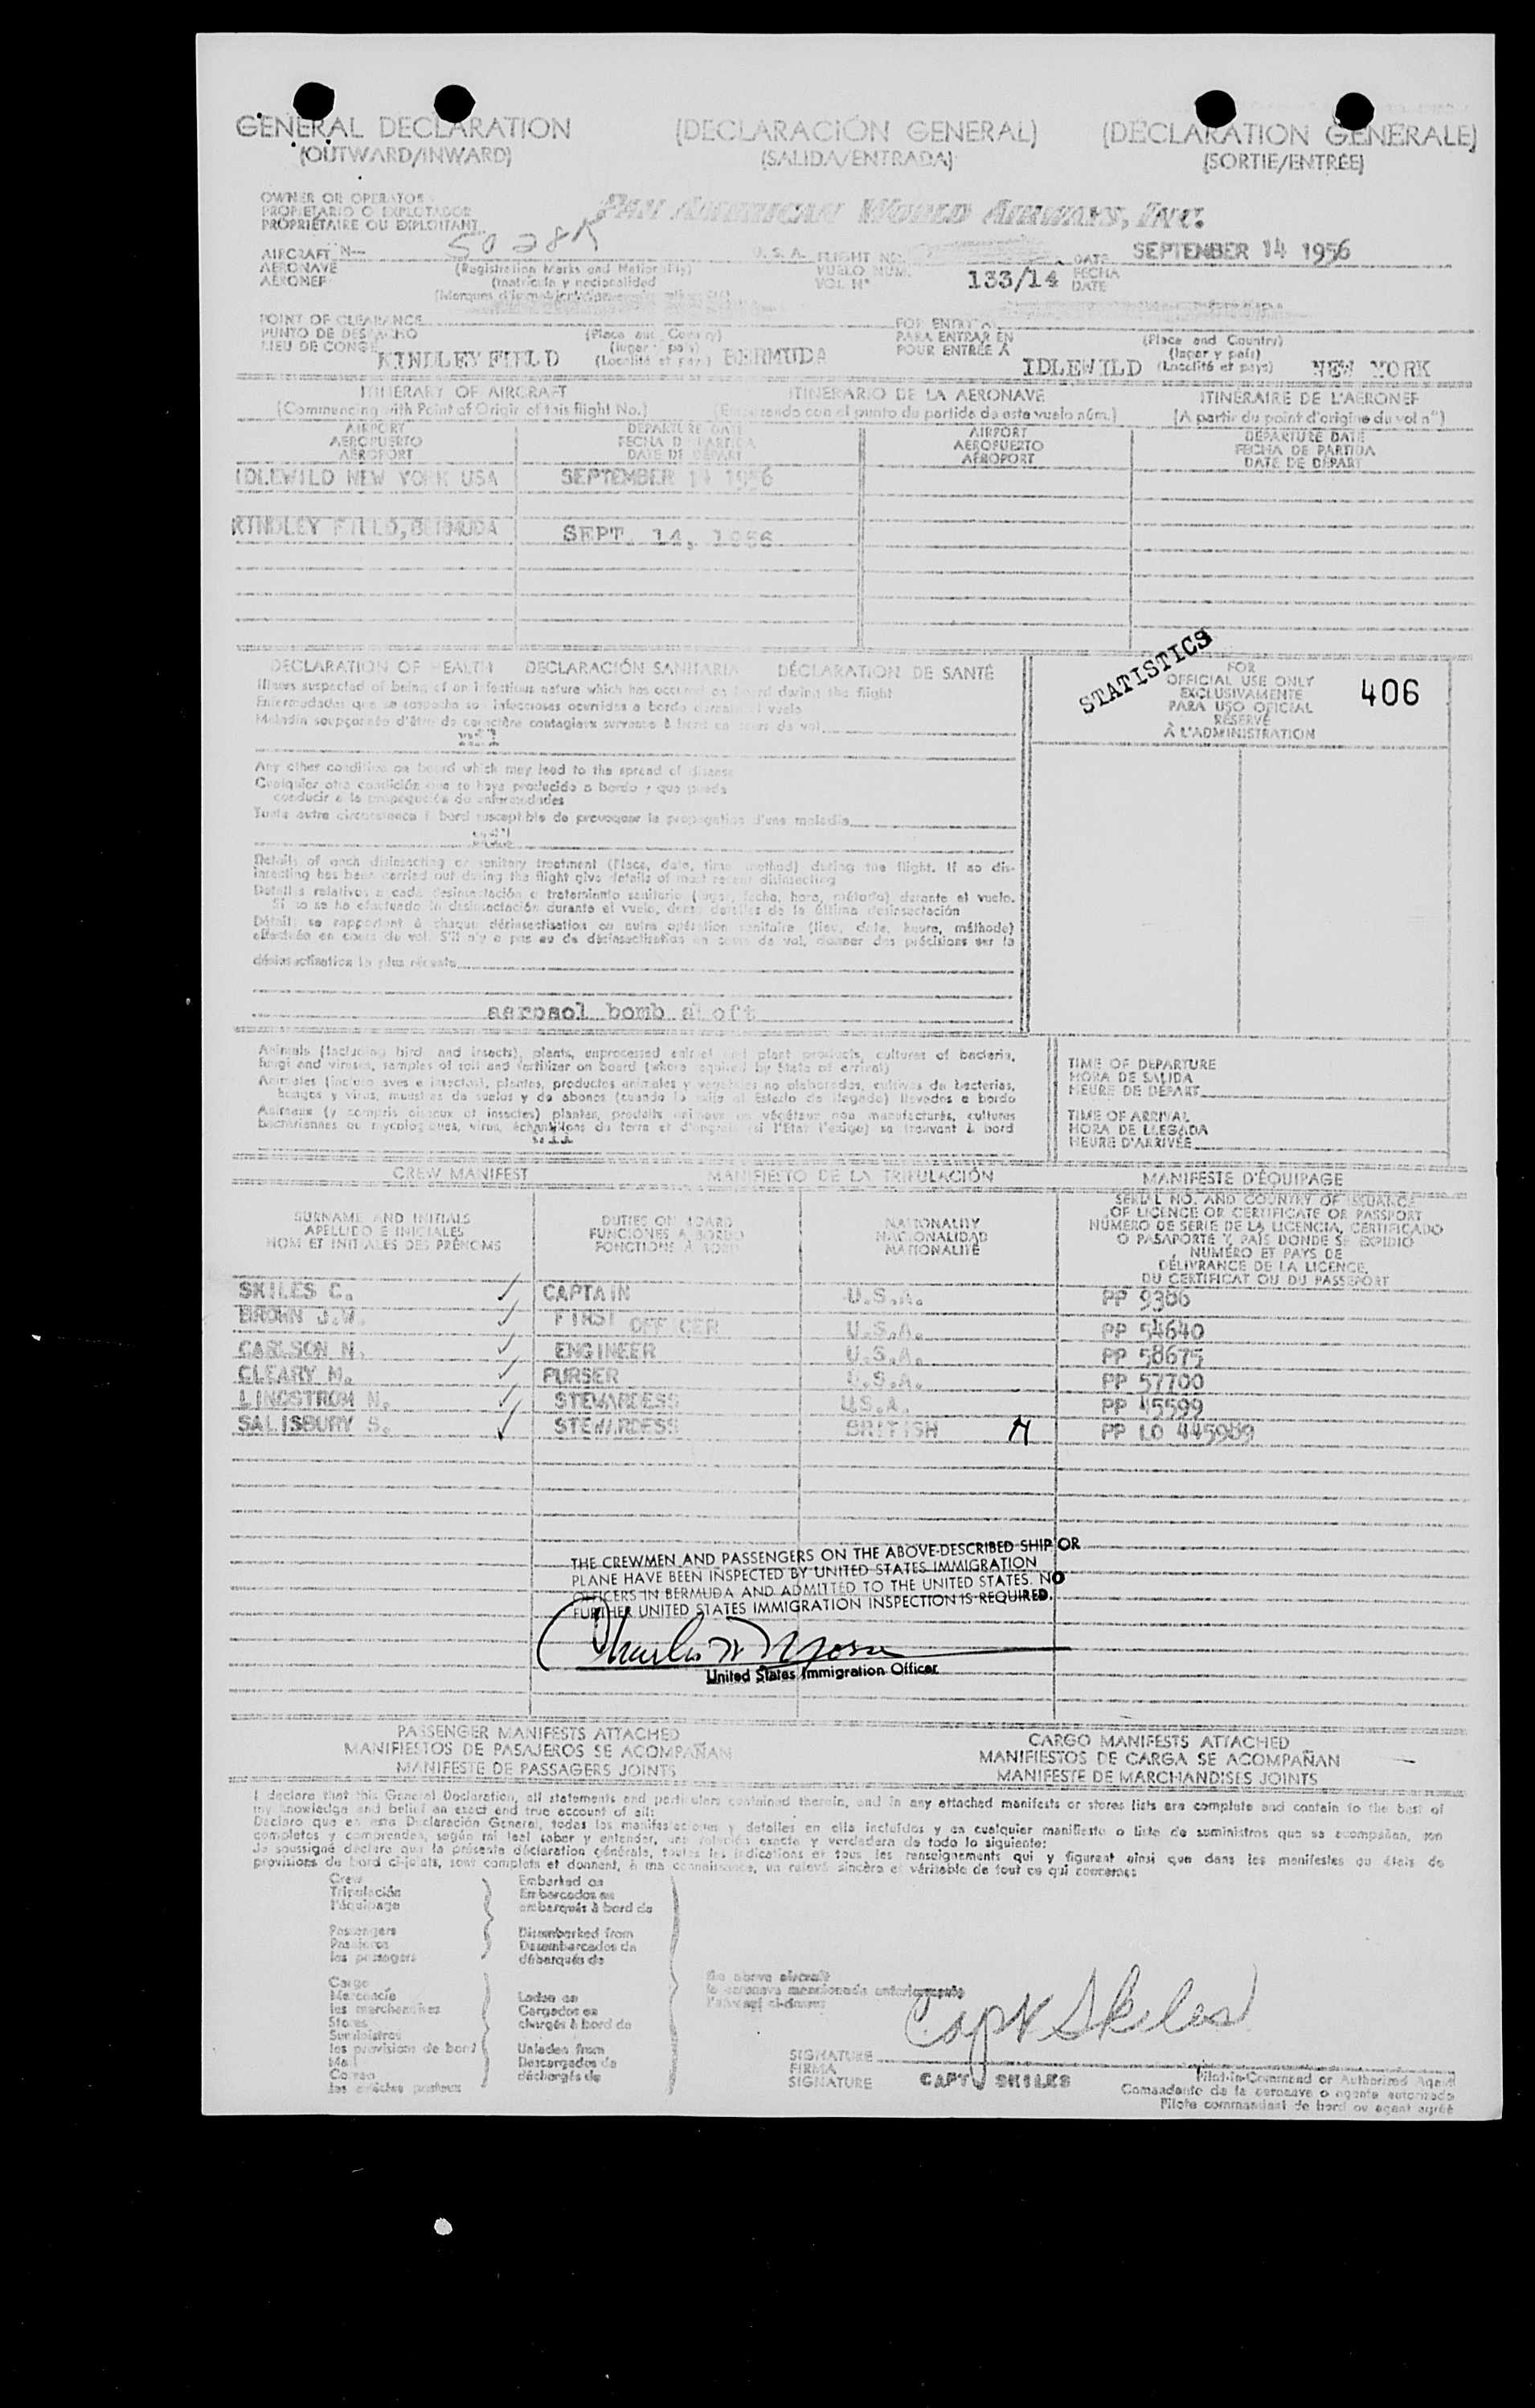 GENERAL DECLARATION (DECLARACIÓN GENERAL) (DÉCLARATION GÉNÉRALE)
(OUTWARD/INWARD) (SALIDA/ENTRADA) (SORTIE/ENTRÉE)
OWNER OR OPERATOR
PROPIETARIO O EXPLOTADOR
PROPRIÉTAIRE OU EXPLOITANT
PAN AMERICAN WORLD AIRWAYS, INC.
AIRCRAFT N— U.S.A. FLIGHT NO. DATE SEPTEMBER 14 1956
AERONAVE (Registration Marks and Nationality) VUELO NUM. 133/14 FECHA
AÉRONEF (matrícula y nacionalidad VOL Nº DATE
POINT OF CLEARANCE FOR ENTRY AT
PUNTO DE DESPACHO (Place and Country) PARA ENTRAR EN (Place and Country)
LIEU DE CONGÉ (lugar y país) POUR ENTRÉE À (lugar y país)
KINDLEY FIELD (Localité et pays) BERMUDA IDLEWILD (Localité et pays) NEW YORK
ITINERARY OF AIRCRAFT ITINERARIO DE LA AERONAVE ITINÉRAIRE DE L'AÉRONEF
(Commencing with Point of Origin of this flight No.) (Empezando con el punto de partida de este vuelo núm.) (A partir du point d'origine du vol nº)
AIRPORT DEPARTURE DATE AIRPORT DEPARTURE DATE
AEROPUERTO FECHA DE PARTIDA AEROPUERTO FECHA DE PARTIDA
AÉROPORT DATE DE DÉPART AÉROPORT DATE DE DÉPART
IDLEWILD NEW YORK USA SEPTEMBER 14 1956
KINDLEY FIELD, BERMUDA SEPT. 14, 1956
DECLARATION OF HEALTH DECLARACIÓN SANITARIA DÉCLARATION DE SANTÉ
Illness suspected of being of an infectious nature which has occurred on board during the flight
Enfermedades que se sospecha son infecciosas ocurridas a bordo durante el vuelo
Maladie soupçonnée d'être de caractère contagieux survenue à bord en cours de vol
STATISTICS
FOR
OFFICIAL USE ONLY
EXCLUSIVAMENTE
PARA USO OFICIAL
RÉSERVÉ
À L'ADMINISTRATION
406
Any other condition on board which may lead to the spread of disease
Cualquier otra condición que se haya producido a bordo y que pueda
conducir a la propagación de enfermedades
Toute autre circonstance à bord susceptible de provoquer la propagation d'une maladie
Details of each disinsecting or sanitary treatment (Place, date, time, method) during the flight. If no dis-
insecting has been carried out during the flight give details of most recent disinsecting
Detalles relativos a cada desinsectación o tratamiento sanitario (lugar, fecha, hora, método) durante el vuelo.
Si no se ha efectuado la desinsectación durante el vuelo, dense detalles de la última desinsectación
Détails se rapportant à chaque désinsectisation ou autre opération sanitaire (lieu, date, heure, méthode)
effectuée en cours de vol. S'il n'y a pas eu de désinsectisation en cours de vol, donner des précisions sur la
désinsectisation la plus récente
aerosol bomb aloft
Animals (Including bird and insects), plants, unprocessed animal and plant products, cultures of bacteria,
fungi and viruses, samples of soil and fertilizer on board (where required by State of arrival)
Animales (incluso aves e insectos), plantas, productos animales y vegetales no elaborados, cultivos de bacterias,
hongos y virus, muestras de suelos y de abonos (cuando lo exija el Estado de llegada) llevados a bordo
Animaux (y compris oiseaux et insectes) plantes, produits animaux ou végétaux non manufacturés, cultures
bactériennes ou mycologiques, virus, échantillons de terre et d'engrais (si l'État l'exige) se trouvant à bord
TIME OF DEPARTURE
HORA DE SALIDA
HEURE DE DÉPART
TIME OF ARRIVAL
HORA DE LLEGADA
HEURE D'ARRIVÉE
CREW MANIFEST MANIFIESTO DE LA TRIPULACIÓN MANIFESTE D'ÉQUIPAGE
SURNAME AND INITIALS DUTIES ON BOARD NATIONALITY
APELLIDO E INICIALES FUNCIONES A BORDO NACIONALIDAD
NOM ET INITIALES DES PRÉNOMS FONCTIONS À BORD NATIONALITÉ
SERIAL NO. AND COUNTRY OF ISSUANCE
OF LICENCE OR CERTIFICATE OR PASSPORT
NÚMERO DE SERIE DE LA LICENCIA, CERTIFICADO
O PASAPORTE Y PAÍS DONDE SE EXPIDIÓ
NUMÉRO ET PAYS DE
DÉLIVRANCE DE LA LICENCE,
DU CERTIFICAT OU DU PASSEPORT
SKILES C. ✓ CAPTAIN U.S.A. PP 9386
BROWN J.W. ✓ FIRST OFFICER U.S.A. PP 54640
CARLSON N. ✓ ENGINEER U.S.A. PP 58675
CLEARY M. ✓ PURSER U.S.A. PP 57700
LINDSTROM N. ✓ STEWARDESS U.S.A. PP 45599
SALISBURY S. ✓ STEWARDESS BRITISH PP LO 445989
THE CREWMEN AND PASSENGERS ON THE ABOVE-DESCRIBED SHIP OR
PLANE HAVE BEEN INSPECTED BY UNITED STATES IMMIGRATION
OFFICERS IN BERMUDA AND ADMITTED TO THE UNITED STATES. NO
FURTHER UNITED STATES IMMIGRATION INSPECTION IS REQUIRED.
United States Immigration Officer
PASSENGER MANIFESTS ATTACHED CARGO MANIFESTS ATTACHED
MANIFIESTOS DE PASAJEROS SE ACOMPAÑAN MANIFIESTOS DE CARGA SE ACOMPAÑAN
MANIFESTE DE PASSAGERS JOINTS MANIFESTE DE MARCHANDISES JOINTS
I declare that this General Declaration, all statements and particulars contained therein, and in any attached manifests or stores lists are complete and contain to the best of
my knowledge and belief an exact and true account of all:
Declaro que en esta Declaración General, todas las manifestaciones y detalles en ella incluídos y en cualquier manifiesto o lista de suministros que se acompañan, son
completos y comprenden, según mi leal saber y entender, una relación exacta y verdadera de todo lo siguiente:
Je soussigné déclare que la présente déclaration générale, toutes les indications et tous les renseignements qui y figurent ainsi que dans les manifestes ou états de
provisions de bord ci-joints, sont complets et donnent, à ma connaissance, un relevé sincère et véritable de tout ce qui concerne:
Crew Embarked on
Tripulación Embarcados en
l'équipage embarqués à bord de
Passengers Disembarked from
Pasajeros Desembarcados de
les passagers débarqués de
Cargo
Mercancía Laden on
les marchandises Cargados en
Stores chargés à bord de
Suministros
les provisions de bord Unladen from
Mail Descargados de
Correo déchargés de
les articles postaux
the above aircraft
la aeronave mencionada anteriormente
l'aéronef ci-dessus
Capt Skiles
SIGNATURE
FIRMA
SIGNATURE CAPT SKILES
Pilot-in-Command or Authorized Agent
Comandante de la aeronave o agente autorizado
Pilote commandant de bord ou agent agréé